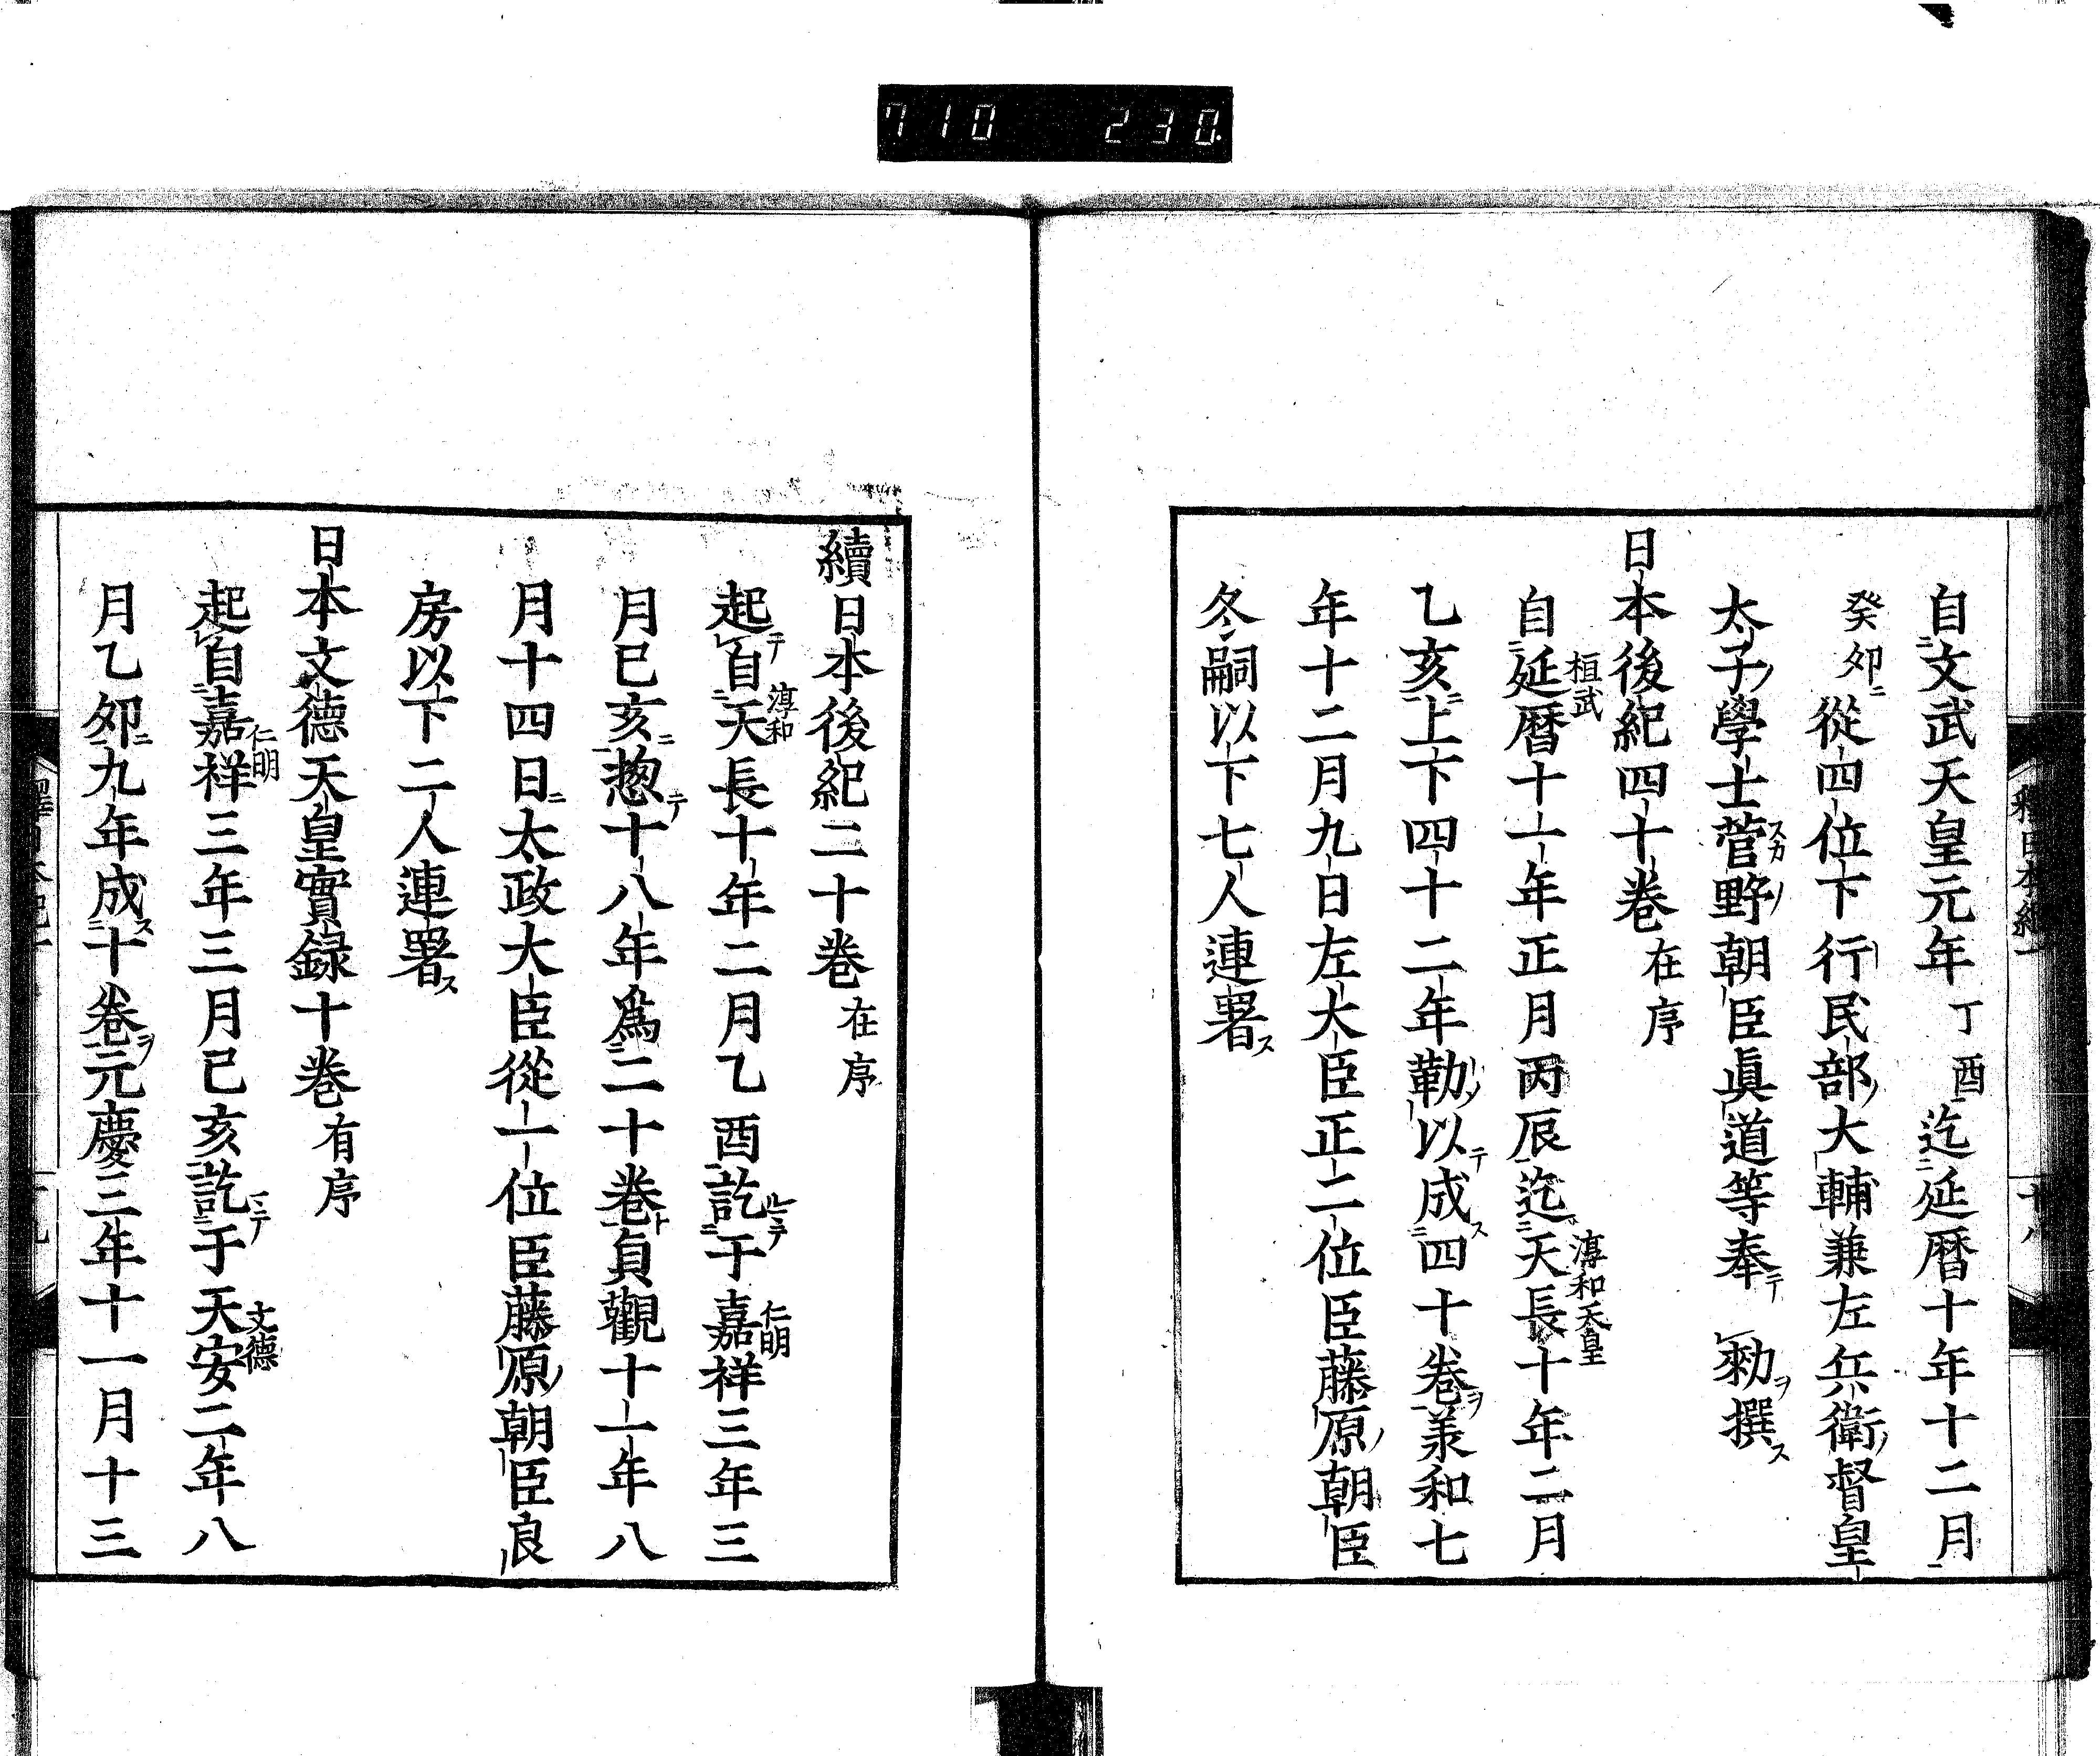 710 230.
自文武天皇元年丁酉迄延暦十年十二月
癸夘從四位下行民部大輔兼左兵衛督皇
太子學士菅野朝臣眞道等奉勑撰
日本後紀四十巻在序
自延暦十一年正月丙辰迄天長十年二月
桓武
淳和天皇
乙亥上下四十二年勒以成四十巻羕和七
年十二月九日左大臣正二位臣藤原朝臣
冬嗣以下七人連署
續日本後紀二十巻在序
起自天長十年二月乙酉訖于嘉祥三年三
淳和
仁明
月已亥惣十八年爲二十巻貞觀十一年八
月十四日太政大臣從一位臣藤原朝臣良
房以下二人連署
日本文德天皇實録十巻有序
起自嘉祥三年三月已亥訖于天安二年八
仁明
文德
月乙夘九年成十巻元慶三年十一月十三